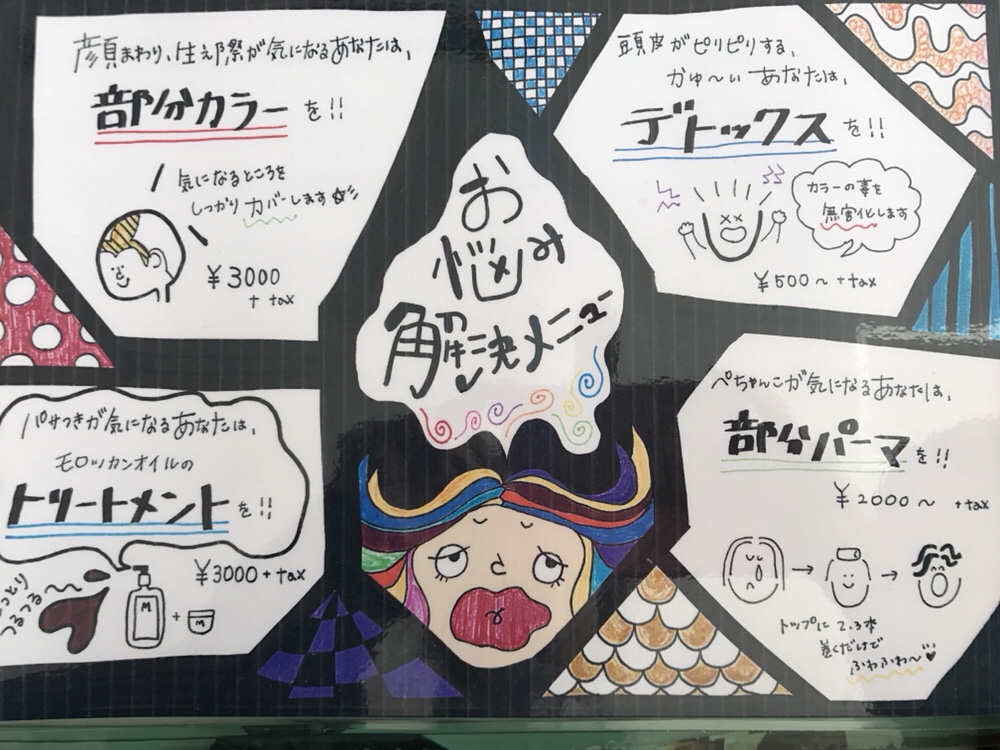 顔まわり、生え際が気になるあなたは、
部分カラー を!!
気になるところを
しっかりカバーします
¥3000
+ tax
頭皮がピリピリする、
かゆ〜い あなたは、
デトックス を!!
カラーの毒を
無害化します
¥500〜 + tax
お
悩み
解決メニュー
パサつきが気になるあなたは、
モロッカンオイルの
トリートメント を!!
¥3000 + tax
つるつる〜
M
+
ぺちゃんこが気になるあなたは、
部分パーマ を!!
¥2000〜 + tax
トップに2.3本
巻くだけで
ふわふわ〜